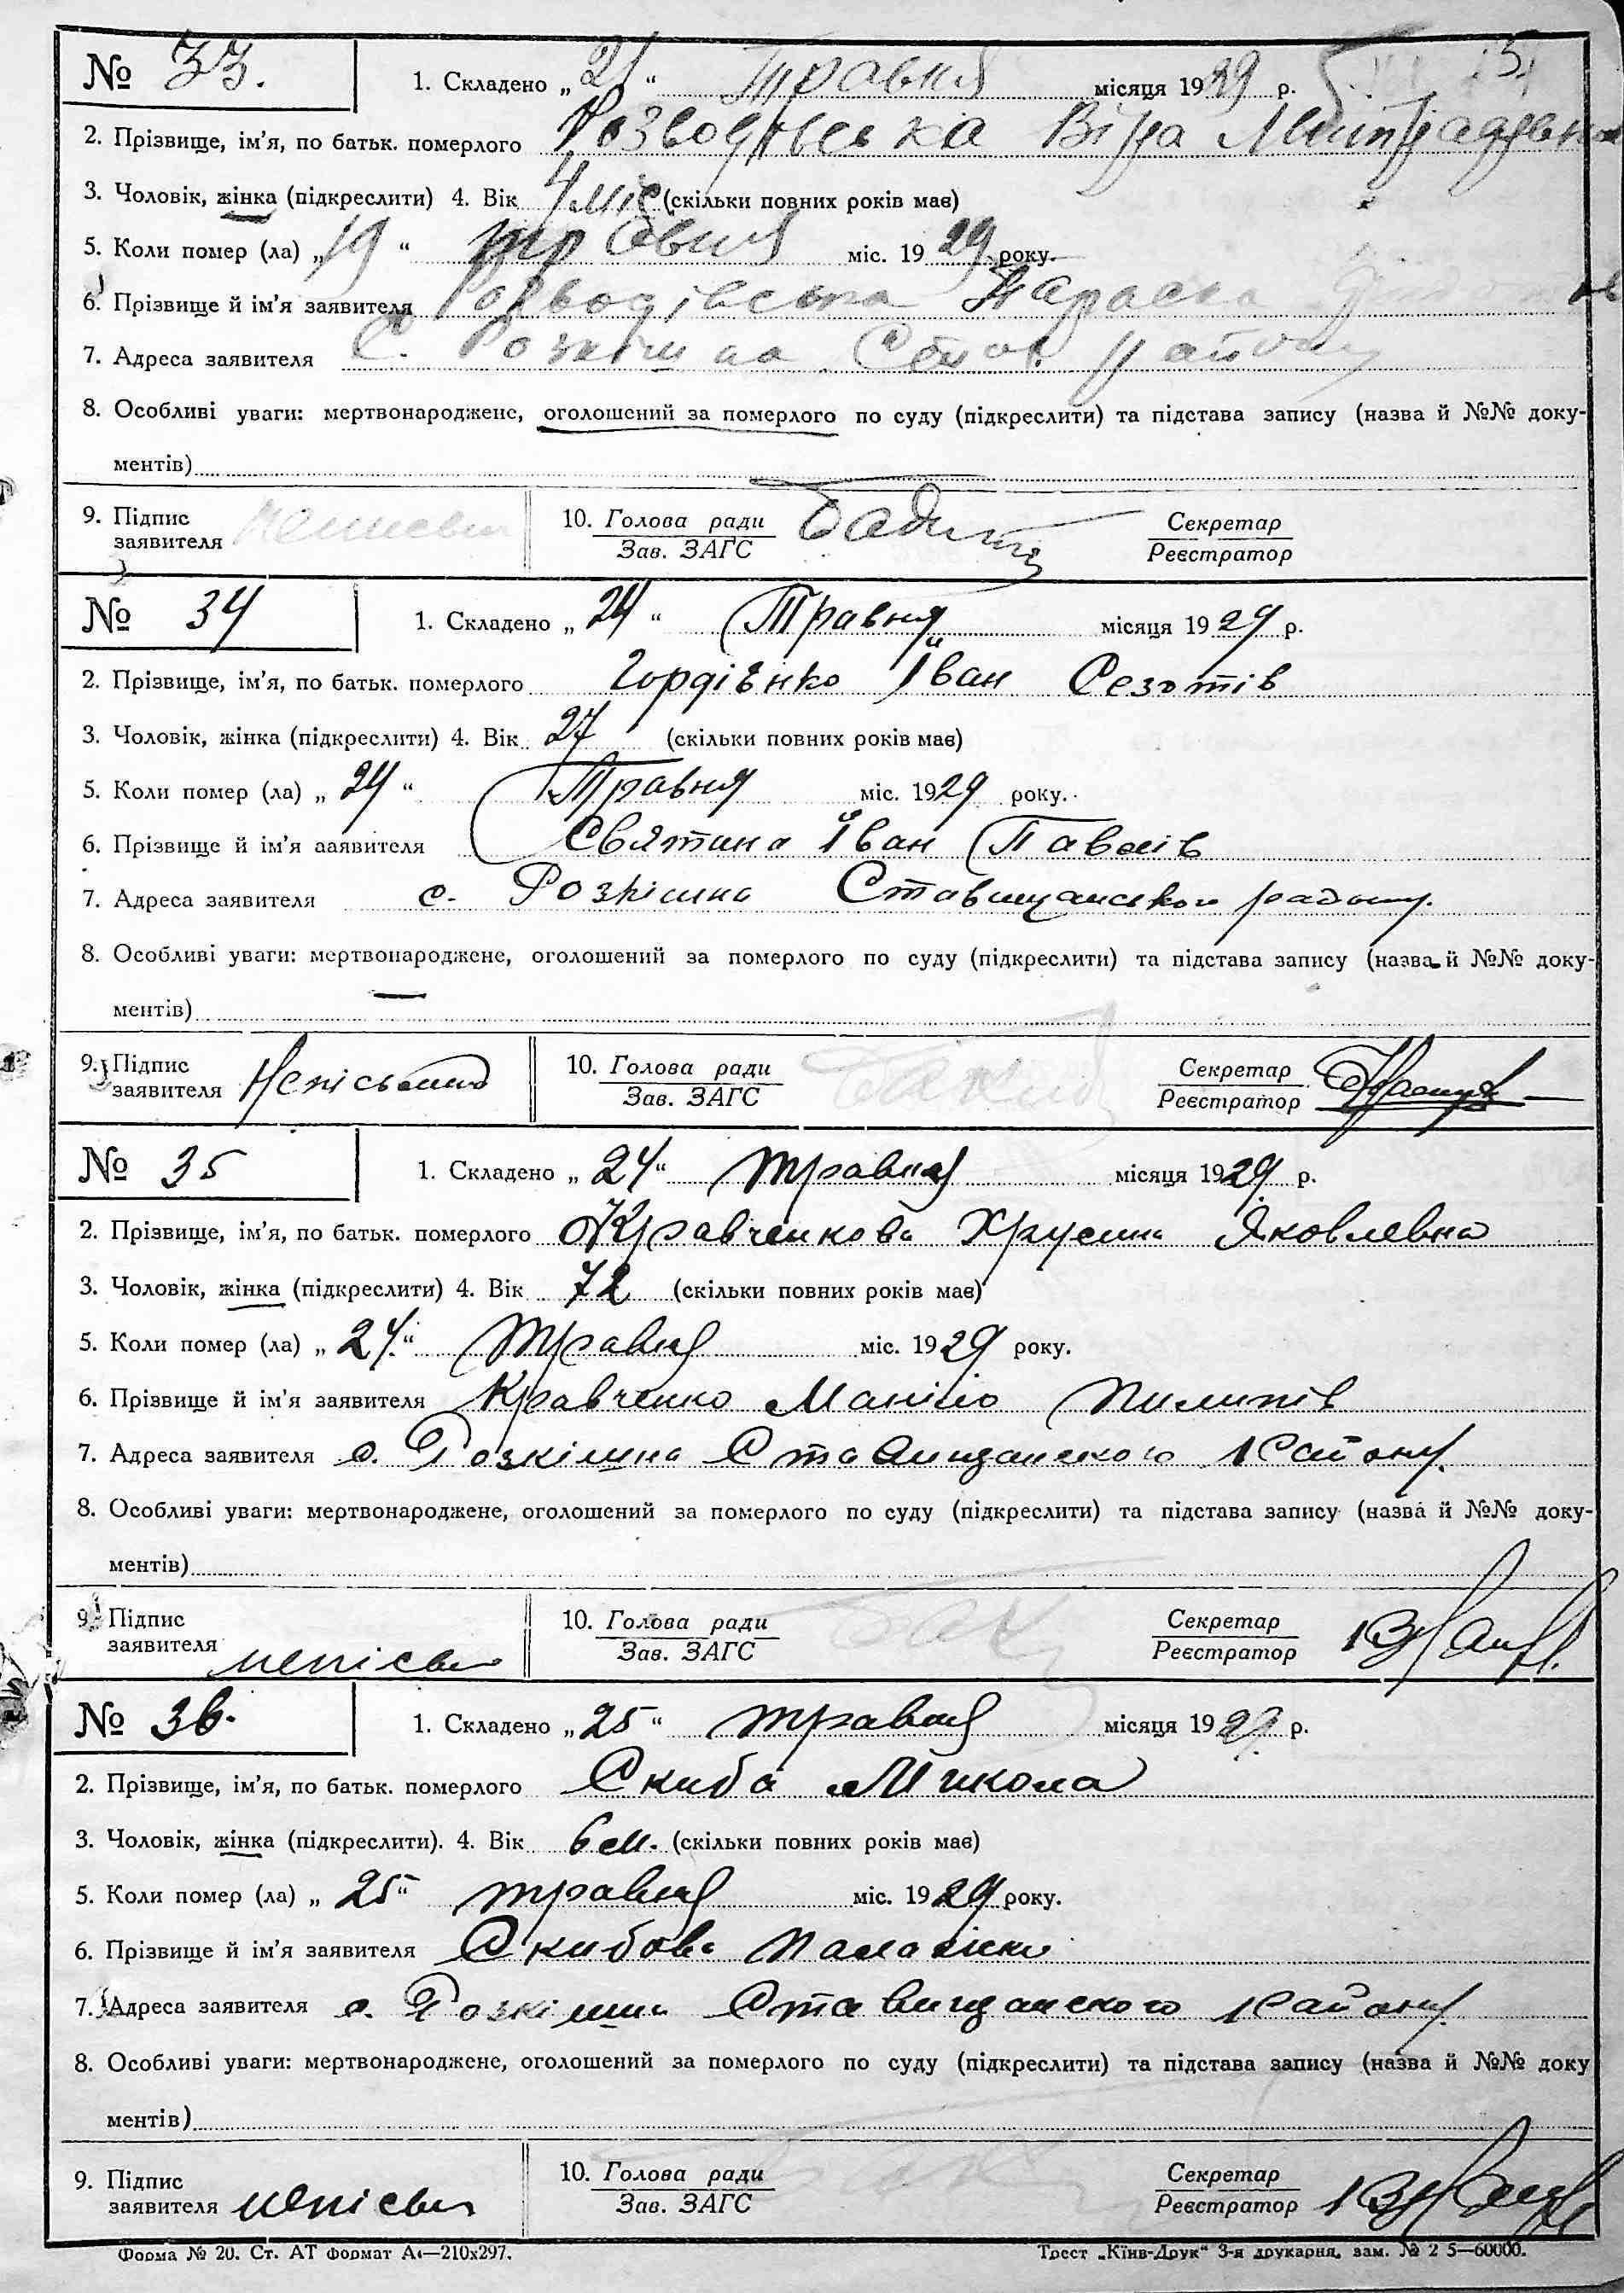 № 33. 1. Складено „ 21 “ Травня місяця 1929 р.
2. Прізвище, ім'я, по батьк. померлого Розводівська Віра
3. Чоловік, жінка (підкреслити) 4. Вік 4 міс (скільки повних років має)
5. Коли помер (ла) „ 19 “ травня міс. 1929 року.
6. Прізвище й ім'я заявителя Розводівська Параска
7. Адреса заявителя С. Розкішна Став. району
8. Особливі уваги: мертвонароджене, оголошений за померлого по суду (підкреслити) та підстава запису (назва й №№ доку-
ментів)
9. Підпис заявителя 10. Голова ради Секретар
Зав. ЗАГС Реєстратор
№ 34 1. Складено „ 24 “ Травня місяця 1929 р.
2. Прізвище, ім'я, по батьк. померлого Гордієнко Іван
3. Чоловік, жінка (підкреслити) 4. Вік 27 (скільки повних років має)
5. Коли помер (ла) „ 24 “ Травня міс. 1929 року.
6. Прізвище й ім'я заявителя Святина Іван Павлів
7. Адреса заявителя с. Розкішна Ставищанського району.
8. Особливі уваги: мертвонароджене, оголошений за померлого по суду (підкреслити) та підстава запису (назва й №№ доку-
ментів)
9. Підпис заявителя 10. Голова ради Секретар
Зав. ЗАГС Реєстратор
№ 35 1. Складено „ 24 “ травня місяця 1929 р.
2. Прізвище, ім'я, по батьк. померлого Кравченкова Хрусина Яковлевна
3. Чоловік, жінка (підкреслити) 4. Вік 72 (скільки повних років має)
5. Коли помер (ла) „ 24 “ травня міс. 1929 року.
6. Прізвище й ім'я заявителя Кравченко Манійло Пилипів
7. Адреса заявителя с. Розкішна Ставищанского району.
8. Особливі уваги: мертвонароджене, оголошений за померлого по суду (підкреслити) та підстава запису (назва й №№ доку-
ментів)
9. Підпис заявителя неписьм 10. Голова ради Секретар
Зав. ЗАГС Реєстратор
№ 36. 1. Складено „ 25 “ травня місяця 1929 р.
2. Прізвище, ім'я, по батьк. померлого Скиба Микола
3. Чоловік, жінка (підкреслити). 4. Вік 6 м. (скільки повних років має)
5. Коли помер (ла) „ 25 “ травня міс. 1929 року.
6. Прізвище й ім'я заявителя Скибова Палажка
7. Адреса заявителя с. Розкішна Ставищанского району.
8. Особливі уваги: мертвонароджене, оголошений за померлого по суду (підкреслити) та підстава запису (назва й №№ доку
ментів)
9. Підпис заявителя неписьм 10. Голова ради Секретар
Зав. ЗАГС Реєстратор
Форма № 20. Ст. АТ Формат А4—210х297. Трест „Київ-Друк“ 3-я друкарня, зам. № 2 5—60000.